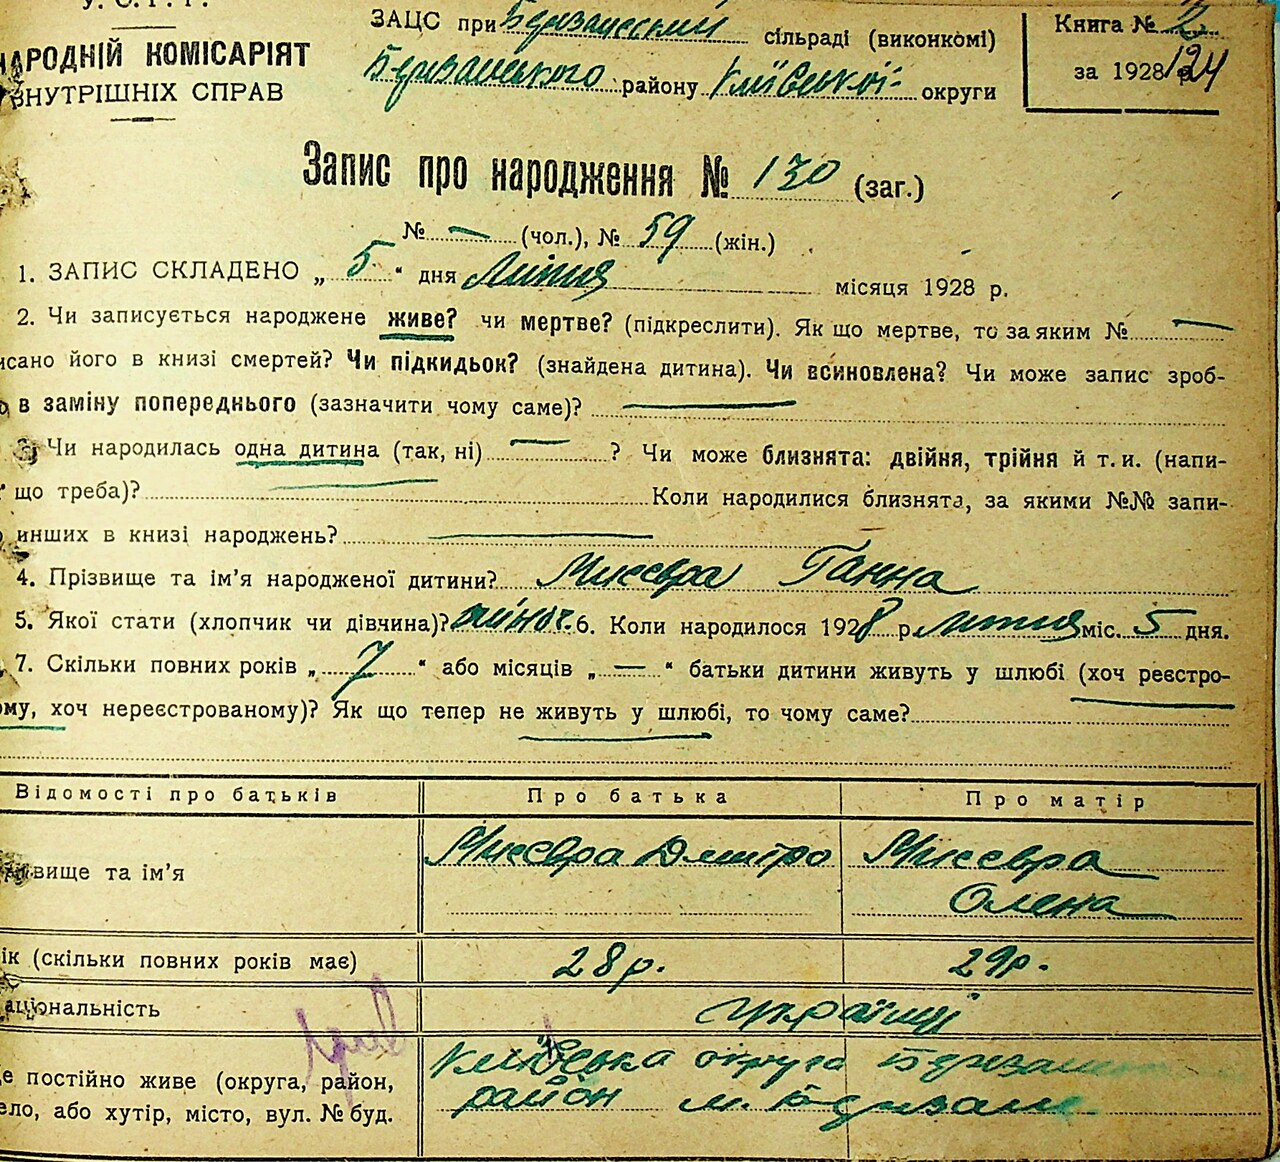 У. С. Р. Р.
НАРОДНІЙ КОМІСАРІЯТ
ВНУТРІШНІХ СПРАВ
ЗАЦС при Березанській сільраді (виконкомі)
Березанського району Київської округи
Книга № 2
за 1928 р. 124
Запис про народження № 130 (заг.)
№ — (чол.), № 59 (жін.)
1. ЗАПИС СКЛАДЕНО „ 5 “ дня Липня місяця 1928 р.
2. Чи записується народжене живе? чи мертве? (підкреслити). Як що мертве, то за яким № —
исано його в книзі смертей? Чи підкидьок? (знайдена дитина). Чи всиновлена? Чи може запис зроб-
о в заміну попереднього (зазначити чому саме)? —
3. Чи народилась одна дитина (так, ні) — ? Чи може близнята: двійня, трійня й т. и. (напи-
що треба)? Коли народилися близнята, за якими №№ запи-
инших в книзі народжень? —
4. Прізвище та ім’я народженої дитини? Ганна
5. Якої стати (хлопчик чи дівчина)? 6. Коли народилося 1928 р. липня міс. 5 дня.
7. Скільки повних років „ 7 “ або місяців „ — “ батьки дитини живуть у шлюбі (хоч реєстро-
ому, хоч нереєстрованому)? Як що тепер не живуть у шлюбі, то чому саме?
Відомості про батьків Про батька Про матір
вище та ім’я Дмитро
Олена
ік (скільки повних років має) 28 р. 29 р.
аціональність Українці
е постійно живе (округа, район, Київська округа
ело, або хутір, місто, вул. № буд. район м. Березань